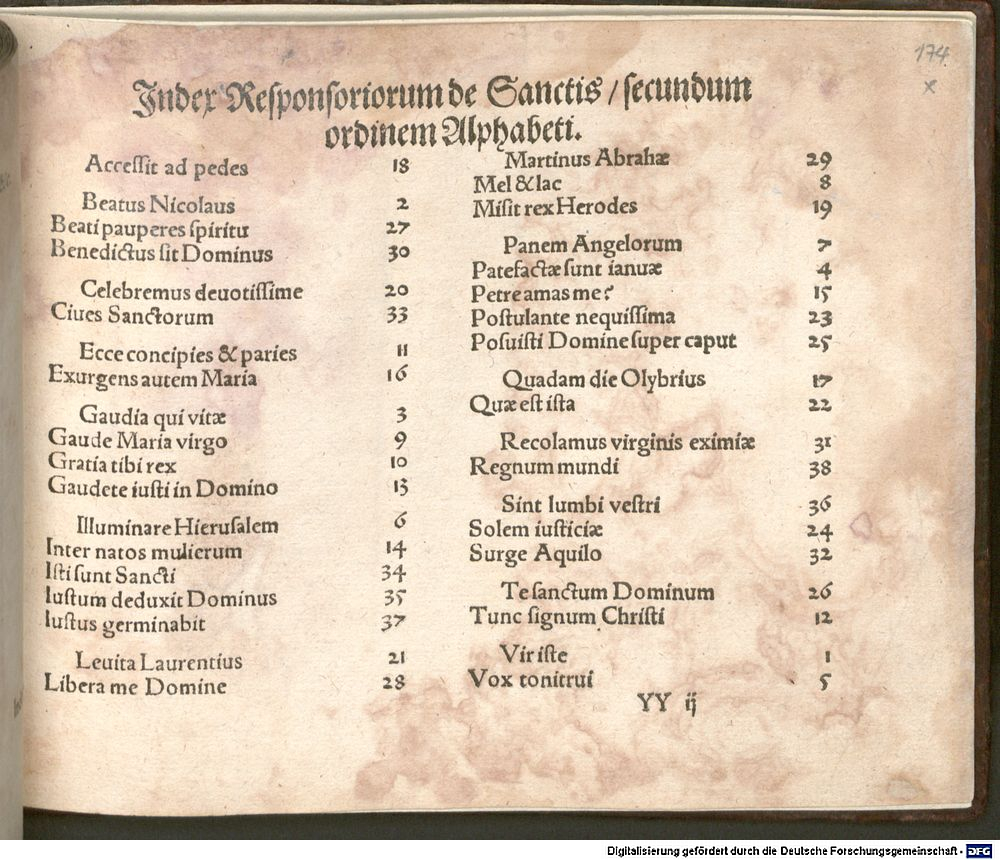 174
x
Index Responsoriorum de Sanctis / secundum
ordinem Alphabeti.
Accessit ad pedes 18
Beatus Nicolaus 2
Beati pauperes spiritu 27
Benedictus sit Dominus 30
Celebremus deuotissime 20
Ciues Sanctorum 33
Ecce concipies & paries 11
Exurgens autem Maria 16
Gaudia qui vitæ 3
Gaude Maria virgo 9
Gratia tibi rex 10
Gaudete iusti in Domino 13
Illuminare Hierusalem 6
Inter natos mulierum 14
Isti sunt Sancti 34
Iustum deduxit Dominus 35
Iustus germinabit 37
Leuita Laurentius 21
Libera me Domine 28
Martinus Abrahæ 29
Mel & lac 8
Misit rex Herodes 19
Panem Angelorum 7
Patefactæ sunt ianuæ 4
Petre amas me? 15
Postulante nequissima 23
Posuisti Domine super caput 25
Quadam die Olybrius 17
Quæ est ista 22
Recolamus virginis eximiæ 31
Regnum mundi 38
Sint lumbi vestri 36
Solem iusticiæ 24
Surge Aquilo 32
Te sanctum Dominum 26
Tunc signum Christi 12
Vir iste 1
Vox tonitrui 5
YY ij
Digitalisierung gefördert durch die Deutsche Forschungsgemeinschaft - DFG